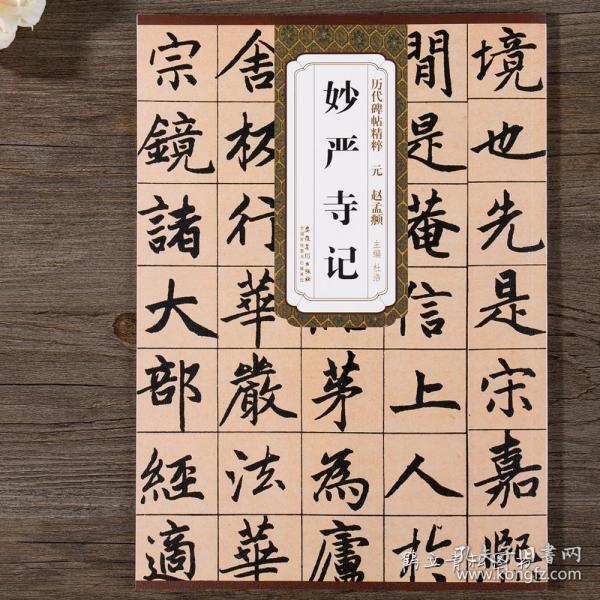 历代碑帖精粹 元 赵孟頫
妙严寺记
主编 杜浩
安徽美术出版社
境也先是宋嘉熙
間是菴信上人於
茅為廬
舍板行華嚴法華
宗鏡諸大部經適
孔夫子旧書网
www.kongfz.com